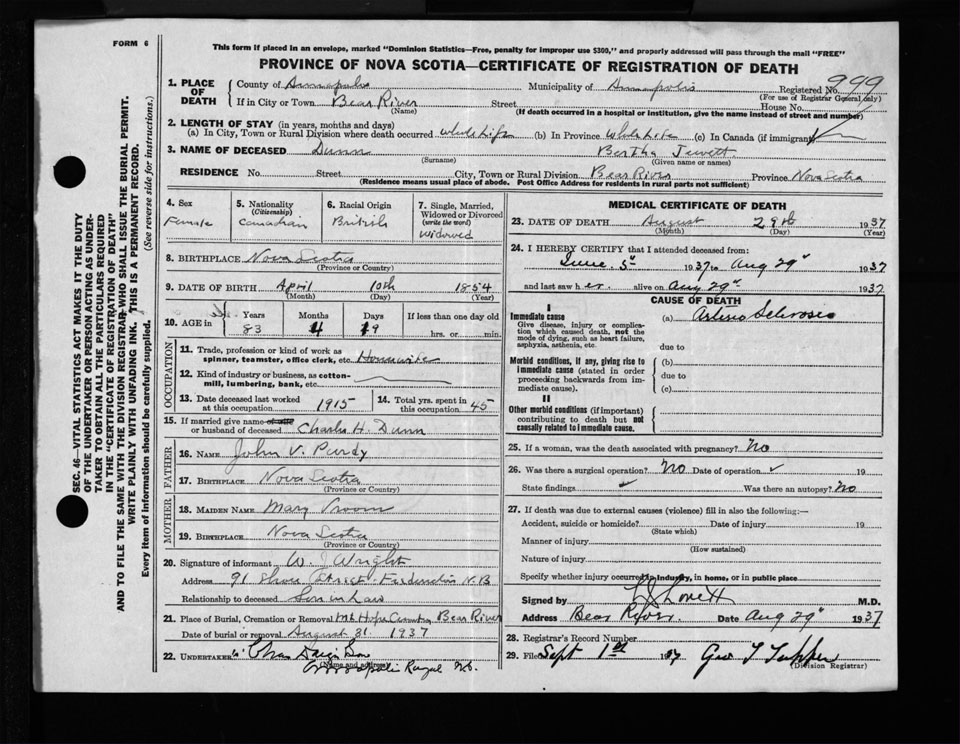 FORM 6
This form if placed in an envelope, marked "Dominion Statistics—Free, penalty for improper use $300," and properly addressed will pass through the mail "FREE"
PROVINCE OF NOVA SCOTIA—CERTIFICATE OF REGISTRATION OF DEATH
1. PLACE OF DEATH County of Annapolis Municipality of Annapolis Registered No. 999
(For use of Registrar General only)
If in City or Town Bear River Street House No.
(Name) (If death occurred in a hospital or institution, give the name instead of street and number)
2. LENGTH OF STAY (in years, months and days)
(a) In City, Town or Rural Division where death occurred whole life (b) In Province Whole Life (c) In Canada (if immigrant)
3. NAME OF DECEASED Dunn Bertha Jewett
(Surname) (Given name or names)
RESIDENCE No. Street City, Town or Rural Division Bear River Province Nova Scotia
(Residence means usual place of abode. Post Office Address for residents in rural parts not sufficient)
4. Sex Female
5. Nationality (Citizenship) Canadian
6. Racial Origin British
7. Single, Married, Widowed or Divorced (write the word) Widowed
8. BIRTHPLACE Nova Scotia
(Province or Country)
9. DATE OF BIRTH April 10th 1854
(Month) (Day) (Year)
10. AGE in Years 83 Months 4 Days 19 If less than one day old hrs. or min.
OCCUPATION
11. Trade, profession or kind of work as spinner, teamster, office clerk, etc. Housewife
12. Kind of industry or business, as cotton-mill, lumbering, bank, etc.
13. Date deceased last worked at this occupation 1915
14. Total yrs. spent in this occupation 45
15. If married give name of wife or husband of deceased Charles H. Dunn
FATHER
16. NAME John V. Purdy
17. BIRTHPLACE Nova Scotia
(Province or Country)
MOTHER
18. MAIDEN NAME Mary Vroom
19. BIRTHPLACE Nova Scotia
(Province or Country)
20. Signature of informant W. Wright
Address 91 Shore Street Fredericton N.B
Relationship to deceased Son in Law
21. Place of Burial, Cremation or Removal Mt Hope Cemetery Bear River
Date of burial or removal August 31 1937
22. UNDERTAKER Chas Dargie Son
(Name and address)
Annapolis Royal N.S.
MEDICAL CERTIFICATE OF DEATH
23. DATE OF DEATH August 29th 1937
(Month) (Day) (Year)
24. I HEREBY CERTIFY that I attended deceased from:
June 5th 1937 to Aug 29th 1937
and last saw her alive on Aug 29th 1937
CAUSE OF DEATH
I
Immediate cause (a) Arterio Sclerosis
Give disease, injury or complication which caused death, not the mode of dying, such as heart failure, asphyxia, asthenia, etc.
due to
Morbid conditions, if any, giving rise to immediate cause (stated in order proceeding backwards from immediate cause).
(b)
due to
(c)
II
Other morbid conditions (if important) contributing to death but not causally related to immediate cause.
25. If a woman, was the death associated with pregnancy? No
26. Was there a surgical operation? No Date of operation 19
State findings Was there an autopsy? No
27. If death was due to external causes (violence) fill in also the following:—
Accident, suicide or homicide? Date of injury 19
(State which)
Manner of injury
(How sustained)
Nature of injury
Specify whether injury occurred in industry, in home, or in public place
Signed by Lovett M.D.
Address Bear River Date Aug 29th 1937
28. Registrar's Record Number
29. Filed Sept 1st 1937 Geo T Tupper
(Division Registrar)
SEC. 46—VITAL STATISTICS ACT MAKES IT THE DUTY
OF THE UNDERTAKER OR PERSON ACTING AS UNDER-
TAKER TO OBTAIN ALL THE PARTICULARS REQUIRED
IN THE "CERTIFICATE OF REGISTRATION OF DEATH"
AND TO FILE THE SAME WITH THE DIVISION REGISTRAR WHO SHALL ISSUE THE BURIAL PERMIT.
WRITE PLAINLY WITH UNFADING INK. THIS IS A PERMANENT RECORD.
Every item of Information should be carefully supplied. (See reverse side for instructions.)